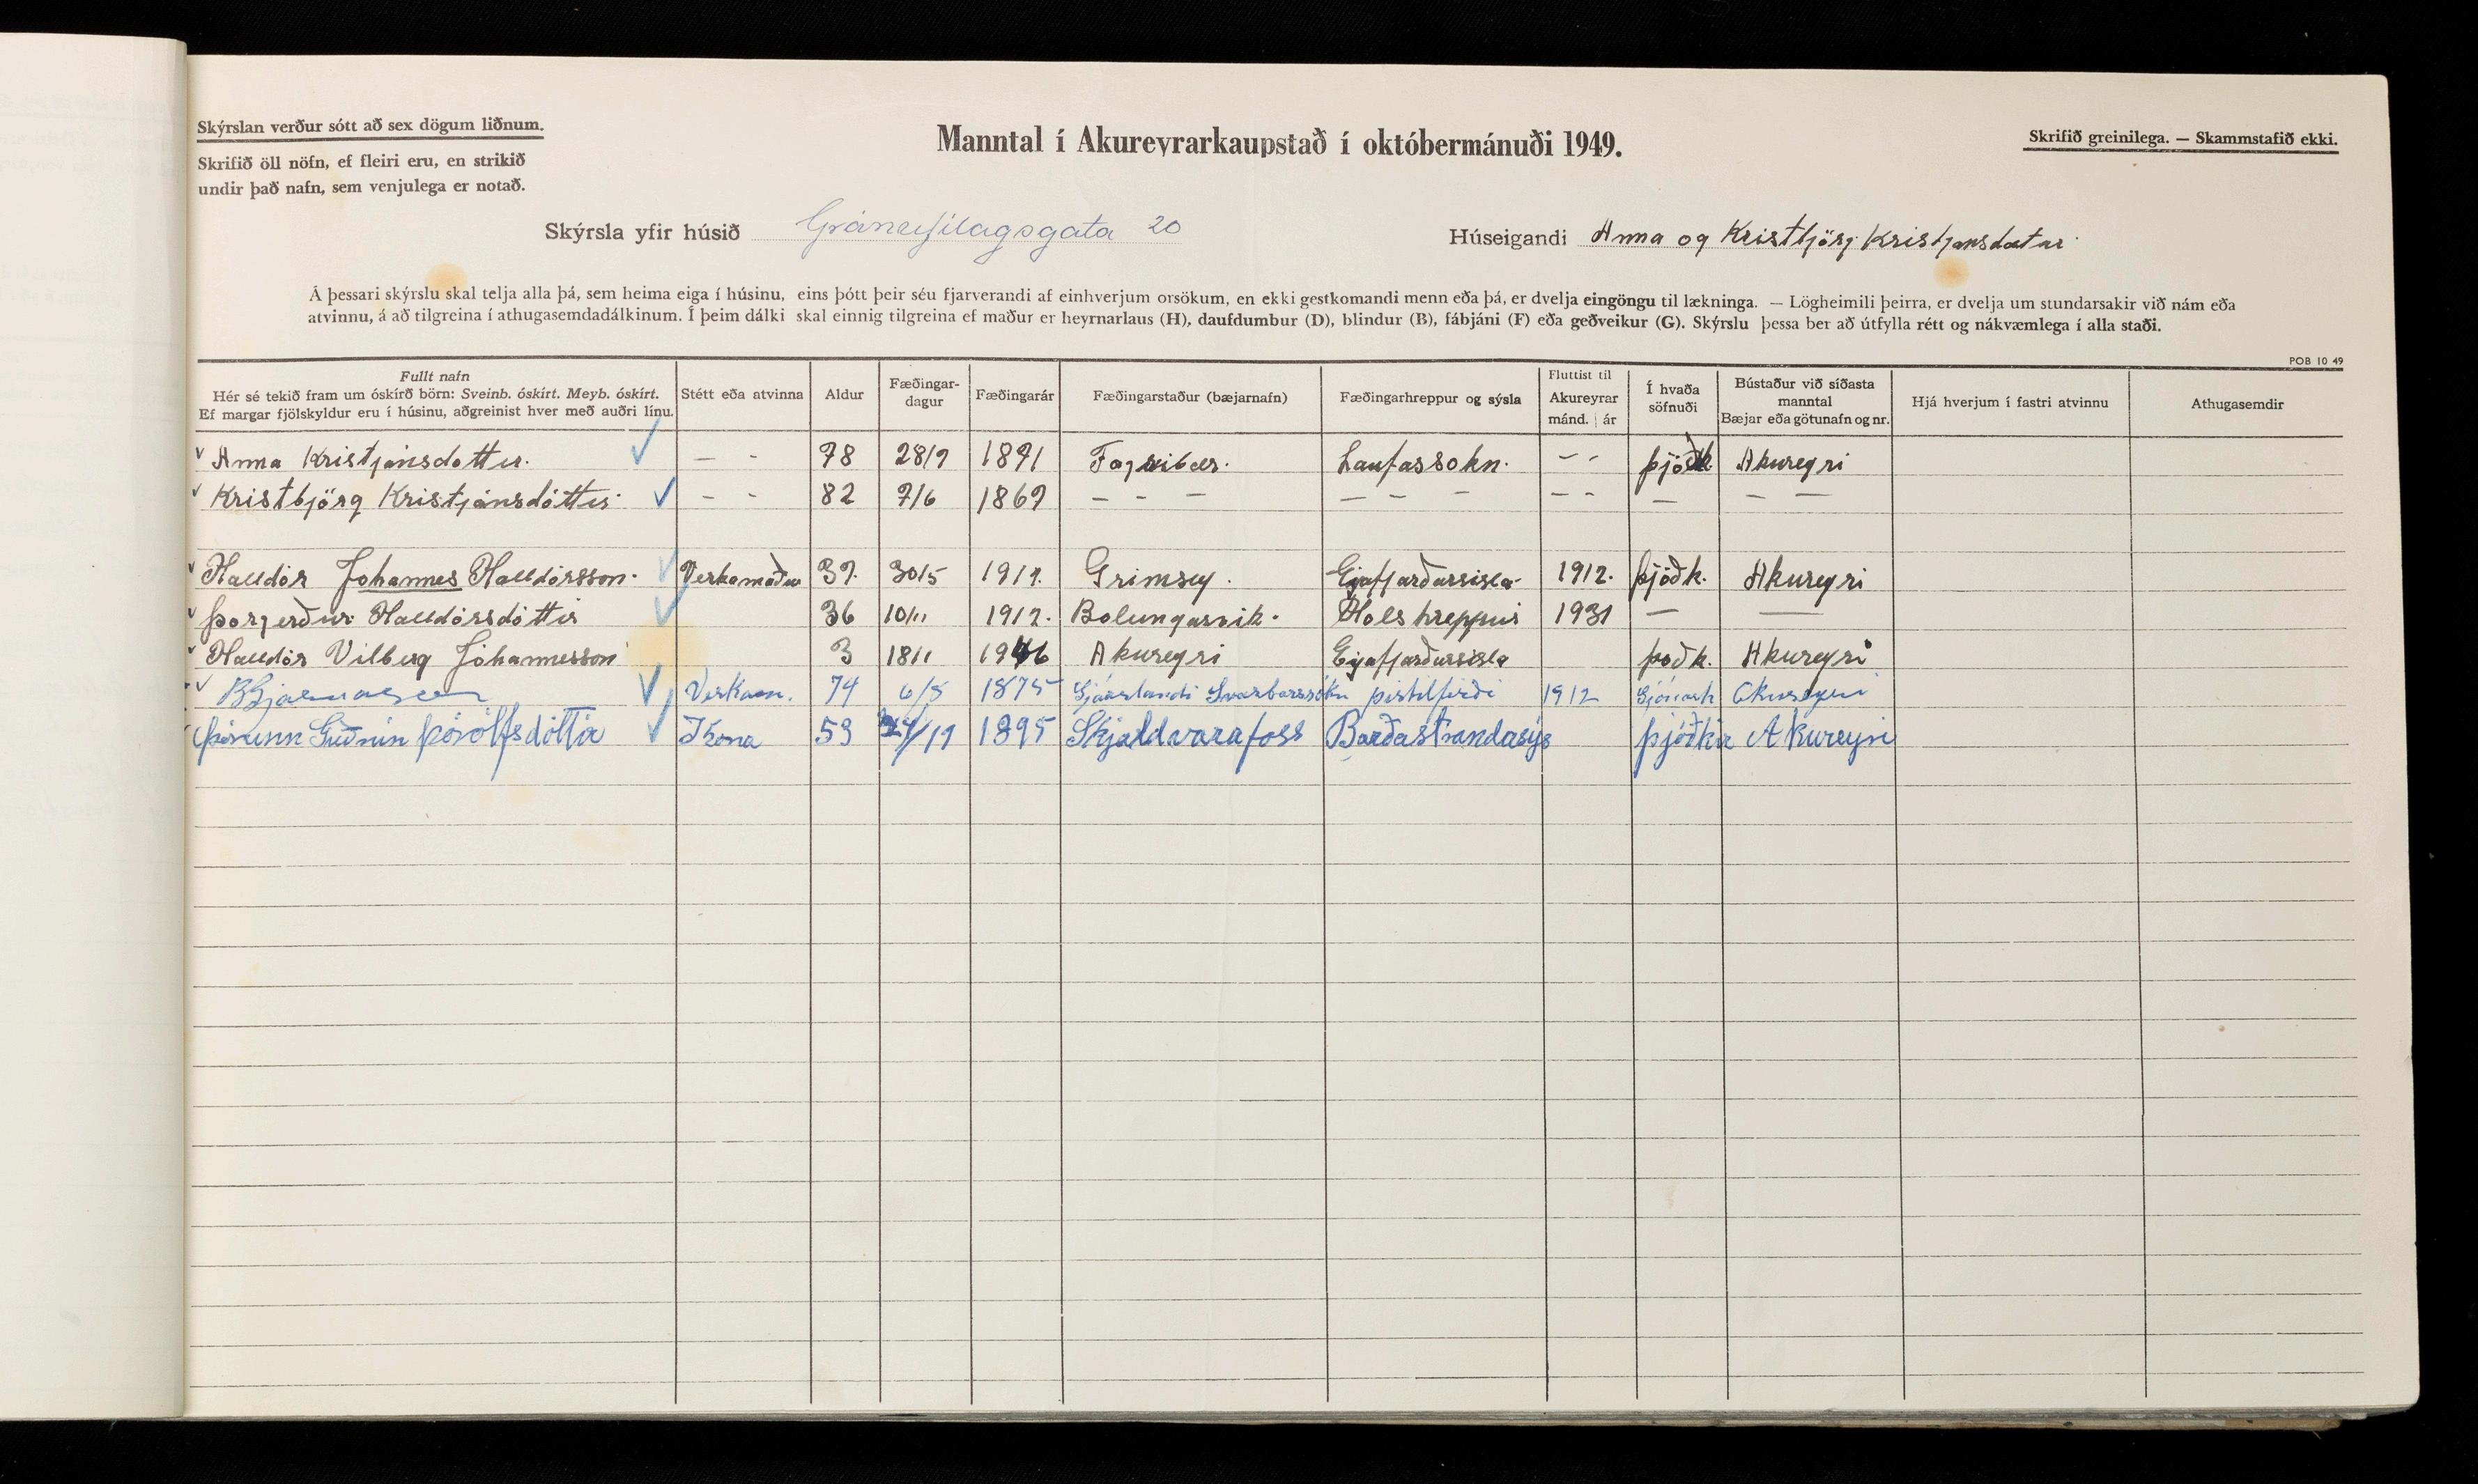 Skýrslan verður sótt að sex dögum liðnum.
Skrifið öll nöfn, ef fleiri eru, en strikið
undir það nafn, sem venjulega er notað.
Manntal í Akureyrarkaupstað í októbermánuði 1949.
Skrifið greinilega. — Skammstafið ekki.
Skýrsla yfir húsið Gránufélagsgata 20
Húseigandi Anna og Kristbjörg Kristjansdætur
Á þessari skýrslu skal telja alla þá, sem heima eiga í húsinu, eins þótt þeir séu fjarverandi af einhverjum orsökum, en ekki gestkomandi menn eða þá, er dvelja eingöngu til lækninga. — Lögheimili þeirra, er dvelja um stundarsakir við nám eða
atvinnu, á að tilgreina í athugasemdadálkinum. Í þeim dálki skal einnig tilgreina ef maður er heyrnarlaus (H), daufdumbur (D), blindur (B), fábjáni (F) eða geðveikur (G). Skýrslu þessa ber að útfylla rétt og nákvæmlega í alla staði.
POB 10 49
Fullt nafn
Hér sé tekið fram um óskírð börn: Sveinb. óskírt. Meyb. óskírt.
Ef margar fjölskyldur eru í húsinu, aðgreinist hver með auðri línu.
Stétt eða atvinna
Aldur
Fæðingar-
dagur
Fæðingarár
Fæðingarstaður (bæjarnafn)
Fæðingarhreppur og sýsla
Fluttist til
Akureyrar
mánd. | ár
Í hvaða
söfnuði
Bústaður við síðasta
manntal
Bæjar eða götunafn og nr.
Hjá hverjum í fastri atvinnu
Athugasemdir
Anna Kristjánsdottir. — - 78 28/7 1871 Fagribær. Laufassokn. - - þjóðk Akureyri
Kristbjörg Kristjánsdóttir - - 82 7/6 1867 — — — — — — — - — — —
Halldór Johannes Halldórsson. Verkamaður 37. 30/5 1917. Grimsey. Eyafjarðarsisla 1912. þjóðk. Akureyri
Þorgerður Halldórsdóttir 36 10/11 1912. Bolungarvik. Hols hreppur 1931 — —
Halldór Vilberg Jóhannesson 3 18/1 1946 Akureyri Eyafjarðarsisla þoðk. Akureyri
Verkam. 74 6/8 1875 Svarbarssókn Þistilfirði 1912 Akureyri
Þórunn Guðrún Þórólfsdóttir Kona 53 /11 1895 Skjaldvarafoss Barðastrandasýs þjóðkir Akureyri